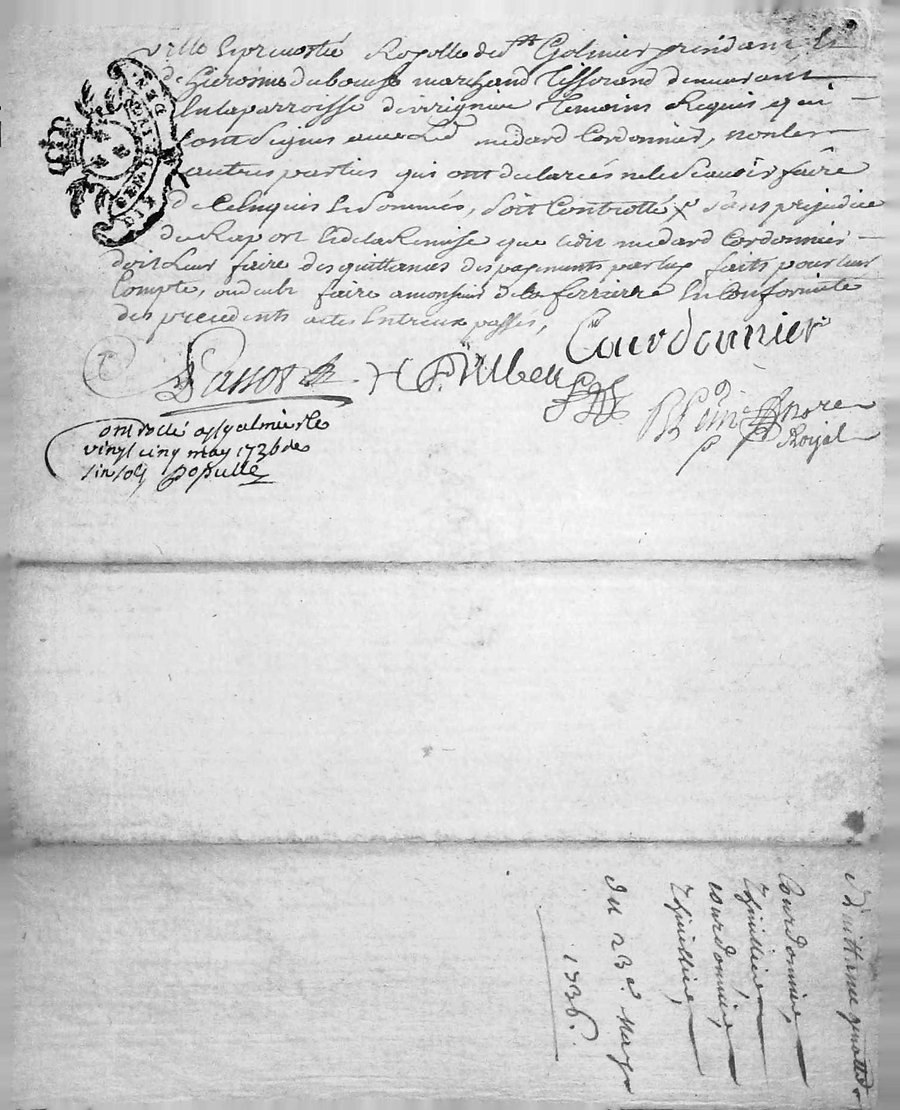 ville & prevosté Royalle de St Galmier presidant le
de hierosme duboeuf marchand tisserand demeurant
en la parroisse de virignieu temoins Requis qui
ont signes avec led medard Cordonnier, non les
autres parties qui ont declarés ne le sçavoir faire
de ce enquis & sommés, soit Controllé & sans prejudice
du Raport & de la Remise que ledit medard Cordonnier
doit leur faire des quittances des payements par luy faits pour leur
Compte, ou de la faire a monsieur de la ferriere en Conformité
des precedents actes entreux passés,
Courdonnier
Royal
ontrollé a st galmier le
vingt cinq may 1736 Re
six sols populle
Courdonnier,
Thuillier,
courdonnier,
Thuillier,
Du 23e. May
1736.